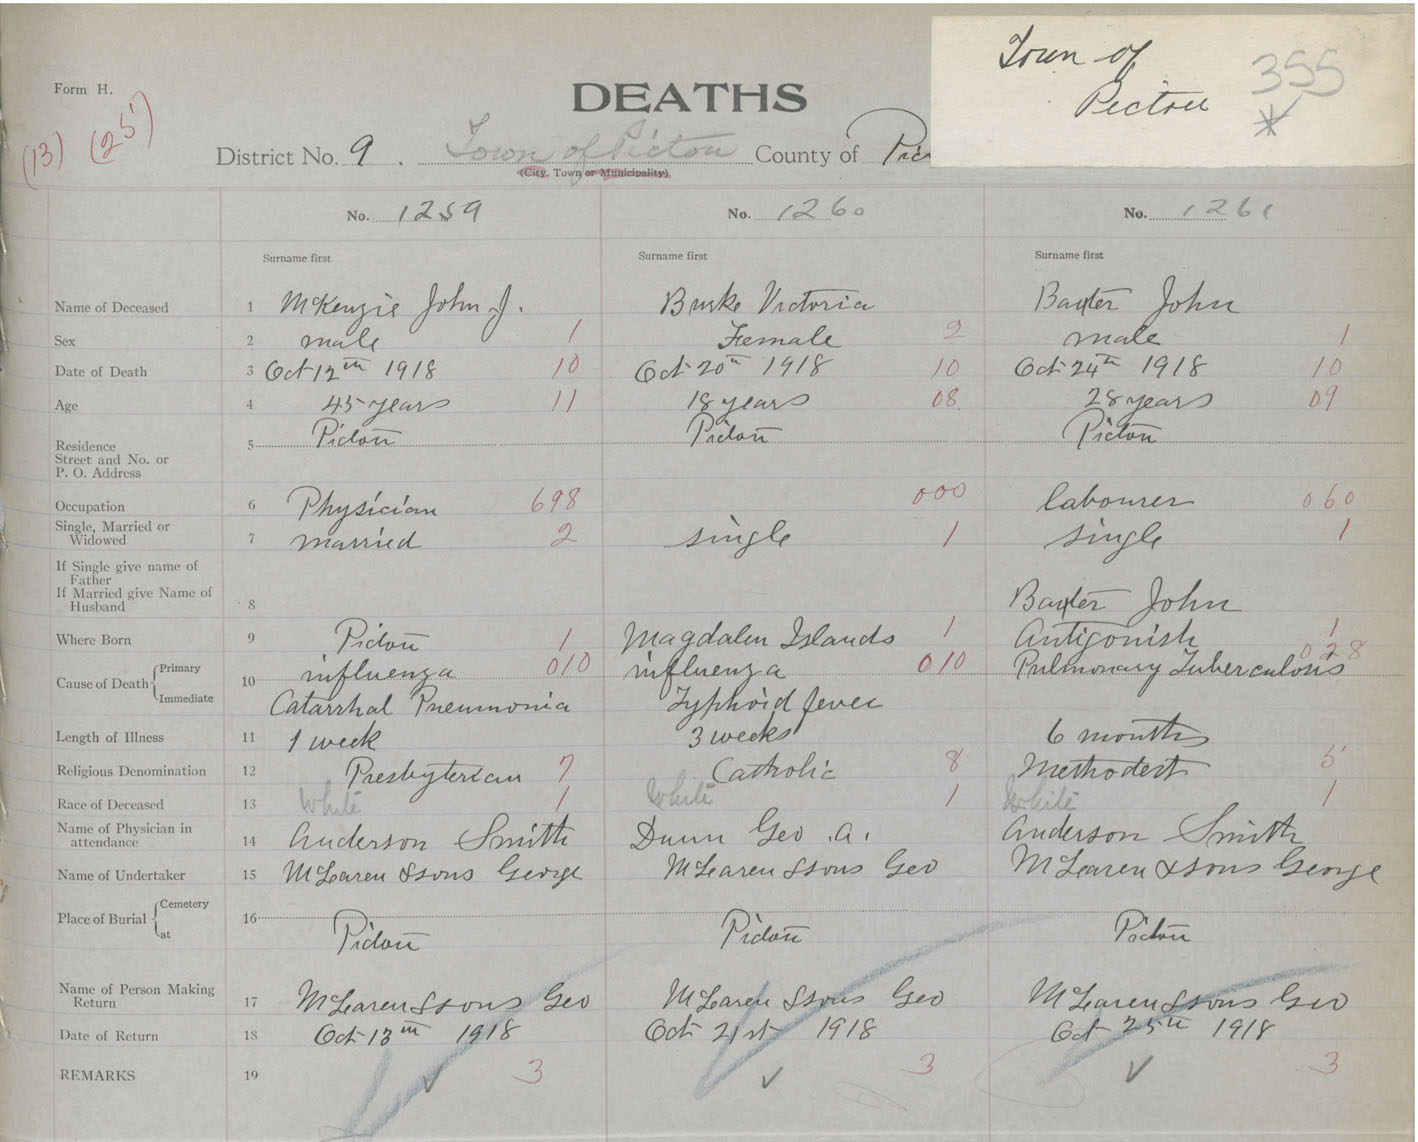 Town of
Pictou
355
Form H.
DEATHS
(13) (25)
District No. 9. Town of Pictou County of Pic
(City, Town or Municipality)
No. 1259 No. 1260 No. 1261
Surname first Surname first Surname first
Name of Deceased 1 McKenzie John J. Burke Victoria Baxter John
Sex 2 male 1 Female 2 male 1
Date of Death 3 Oct 12th 1918 10 Oct 20th 1918 10 Oct 24th 1918 10
Age 4 45 years 11 18 years 08. 28 years 09
Residence 5 Pictou Pictou Pictou
Street and No. or
P. O. Address
Occupation 6 Physician 698 000 labourer 060
Single, Married or
Widowed 7 married 2 single 1 single 1
If Single give name of
Father
If Married give Name of
Husband 8 Baxter John
Where Born 9 Pictou 1 Magdalen Islands 1 Antigonish 1
Cause of Death Primary 10 influenza 010 influenza 010 Pulmonary Tuberculosis 028
Immediate Catarrhal Pneumonia Typhoid fever
Length of Illness 11 1 week 3 weeks 6 months
Religious Denomination 12 Presbyterian 7 Catholic 8 Methodist 5
Race of Deceased 13 White 1 White 1 White 1
Name of Physician in
attendance 14 Anderson Smith Dunn Geo. A. Anderson Smith
Name of Undertaker 15 McLearen & sons George McLearen & sons Geo McLearen & sons George
Place of Burial Cemetery 16
at Pictou Pictou Pictou
Name of Person Making
Return 17 McLearen & sons Geo McLearen & sons Geo McLearen & sons Geo
Date of Return 18 Oct 13th 1918 Oct 21st 1918 Oct 25th 1918
REMARKS 19 3 3 3